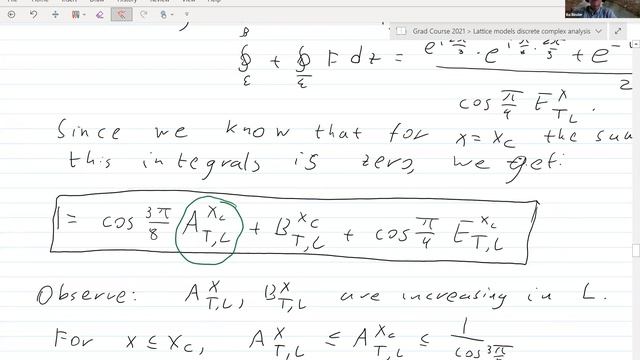 Move Undo Redo Select Text Draw Stamp Arrow Eraser Format Undo Redo Clear Save
Grad Course 2021 > Lattice models discrete complex analysis
∮_ε + ∮_ε F dz = e^{i 2π/3} · e^{i π/4 · 2π/3} + e^{-
2
cos π/4 E^x_{T,L}.
Since we know that for x = x_c the sum
this integrals is zero, we get:
1 = cos 3π/8 A^{x_c}_{T,L} + B^{x_c}_{T,L} + cos π/4 E^{x_c}_{T,L}
Observe: A^x_{T,L}, B^x_{T,L} are increasing in L.
For x ≤ x_c, A^x_{T,L} ≤ A^{x_c}_{T,L} ≤ 1/cos 3π/8